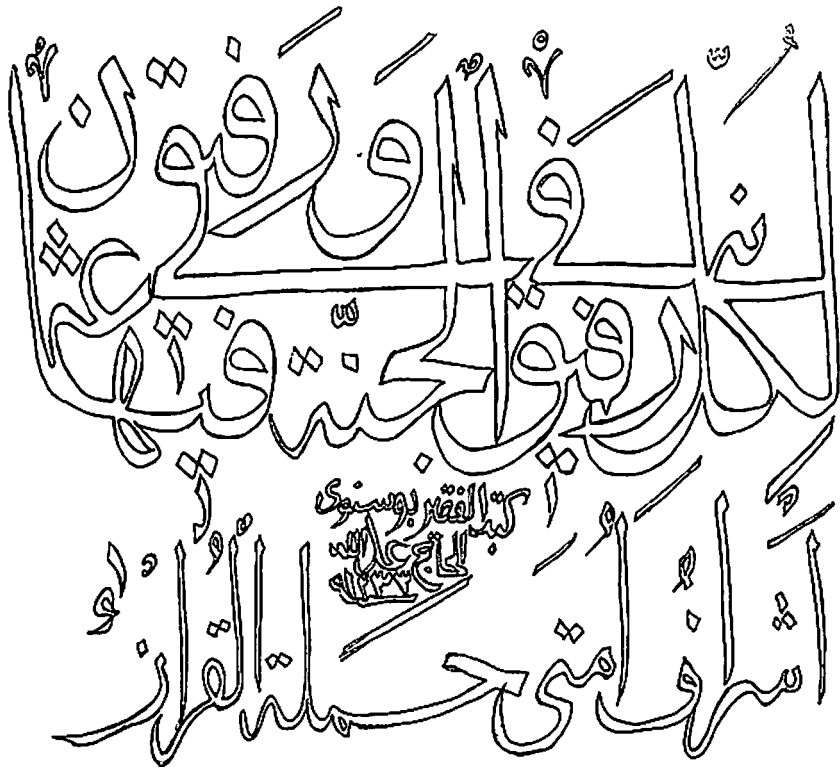 لكل نبي رفيق في الجنة ورفيقي فيها عثمان
كتبه الفقير بوسنوى
الحاج عبد الله
أشراف أمتي حملة القرآن